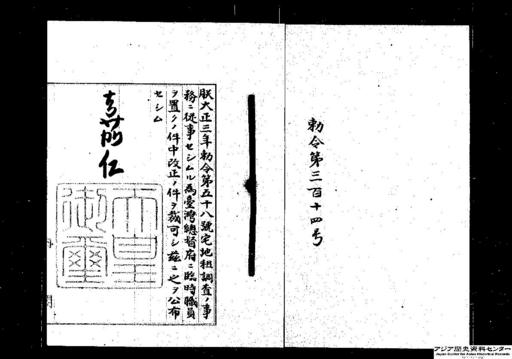 勅令第三百十四号
朕大正三年勅令第五十八號宅地租調査ノ事
務ニ従事セシムル為臺灣總督府ニ臨時職員
ヲ置クノ件中改正ノ件ヲ裁可シ茲ニ之ヲ公布
セシム
嘉仁
天皇
御璽
アジア歴史資料センター
Japan Center for Asian Historical Records